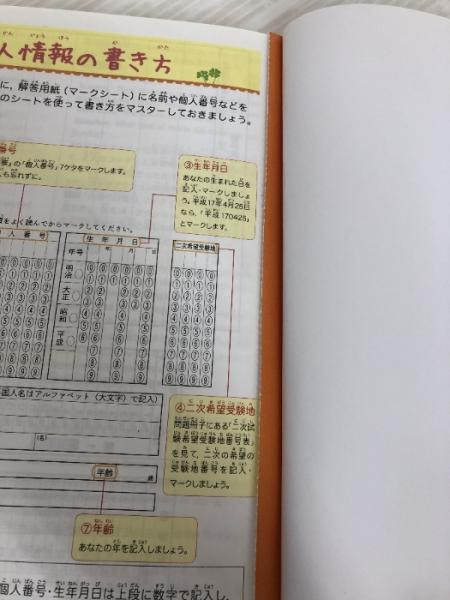 人情報の書き方
に，解答用紙（マークシート）に名前や個人番号などを
のシートを使って書き方をマスターしておきましょう。
番号
の「個人番号」7ケタをマークします。
も忘れずに。
③生年月日
あなたの生まれた日を
記入・マークしましょ
う。平成17年4月25日
なら，「平成 170425」
とマークします。
をよく読んでからマークしてください。
人番号
生年月日
年号
年
月
日
明治
大正
昭和
平成
二次希望受験地
国人名はアルファベット（大文字）で記入）
(名)
④二次希望受験地
問題冊子にある「二次試
験希望受験地番号表」
を見て，二次の希望の
受験地番号を記入・
マークしましょう。
年齢
⑦年齢
あなたの年を記入しましょう。
個人番号・生年月日は上段に数字で記入し，